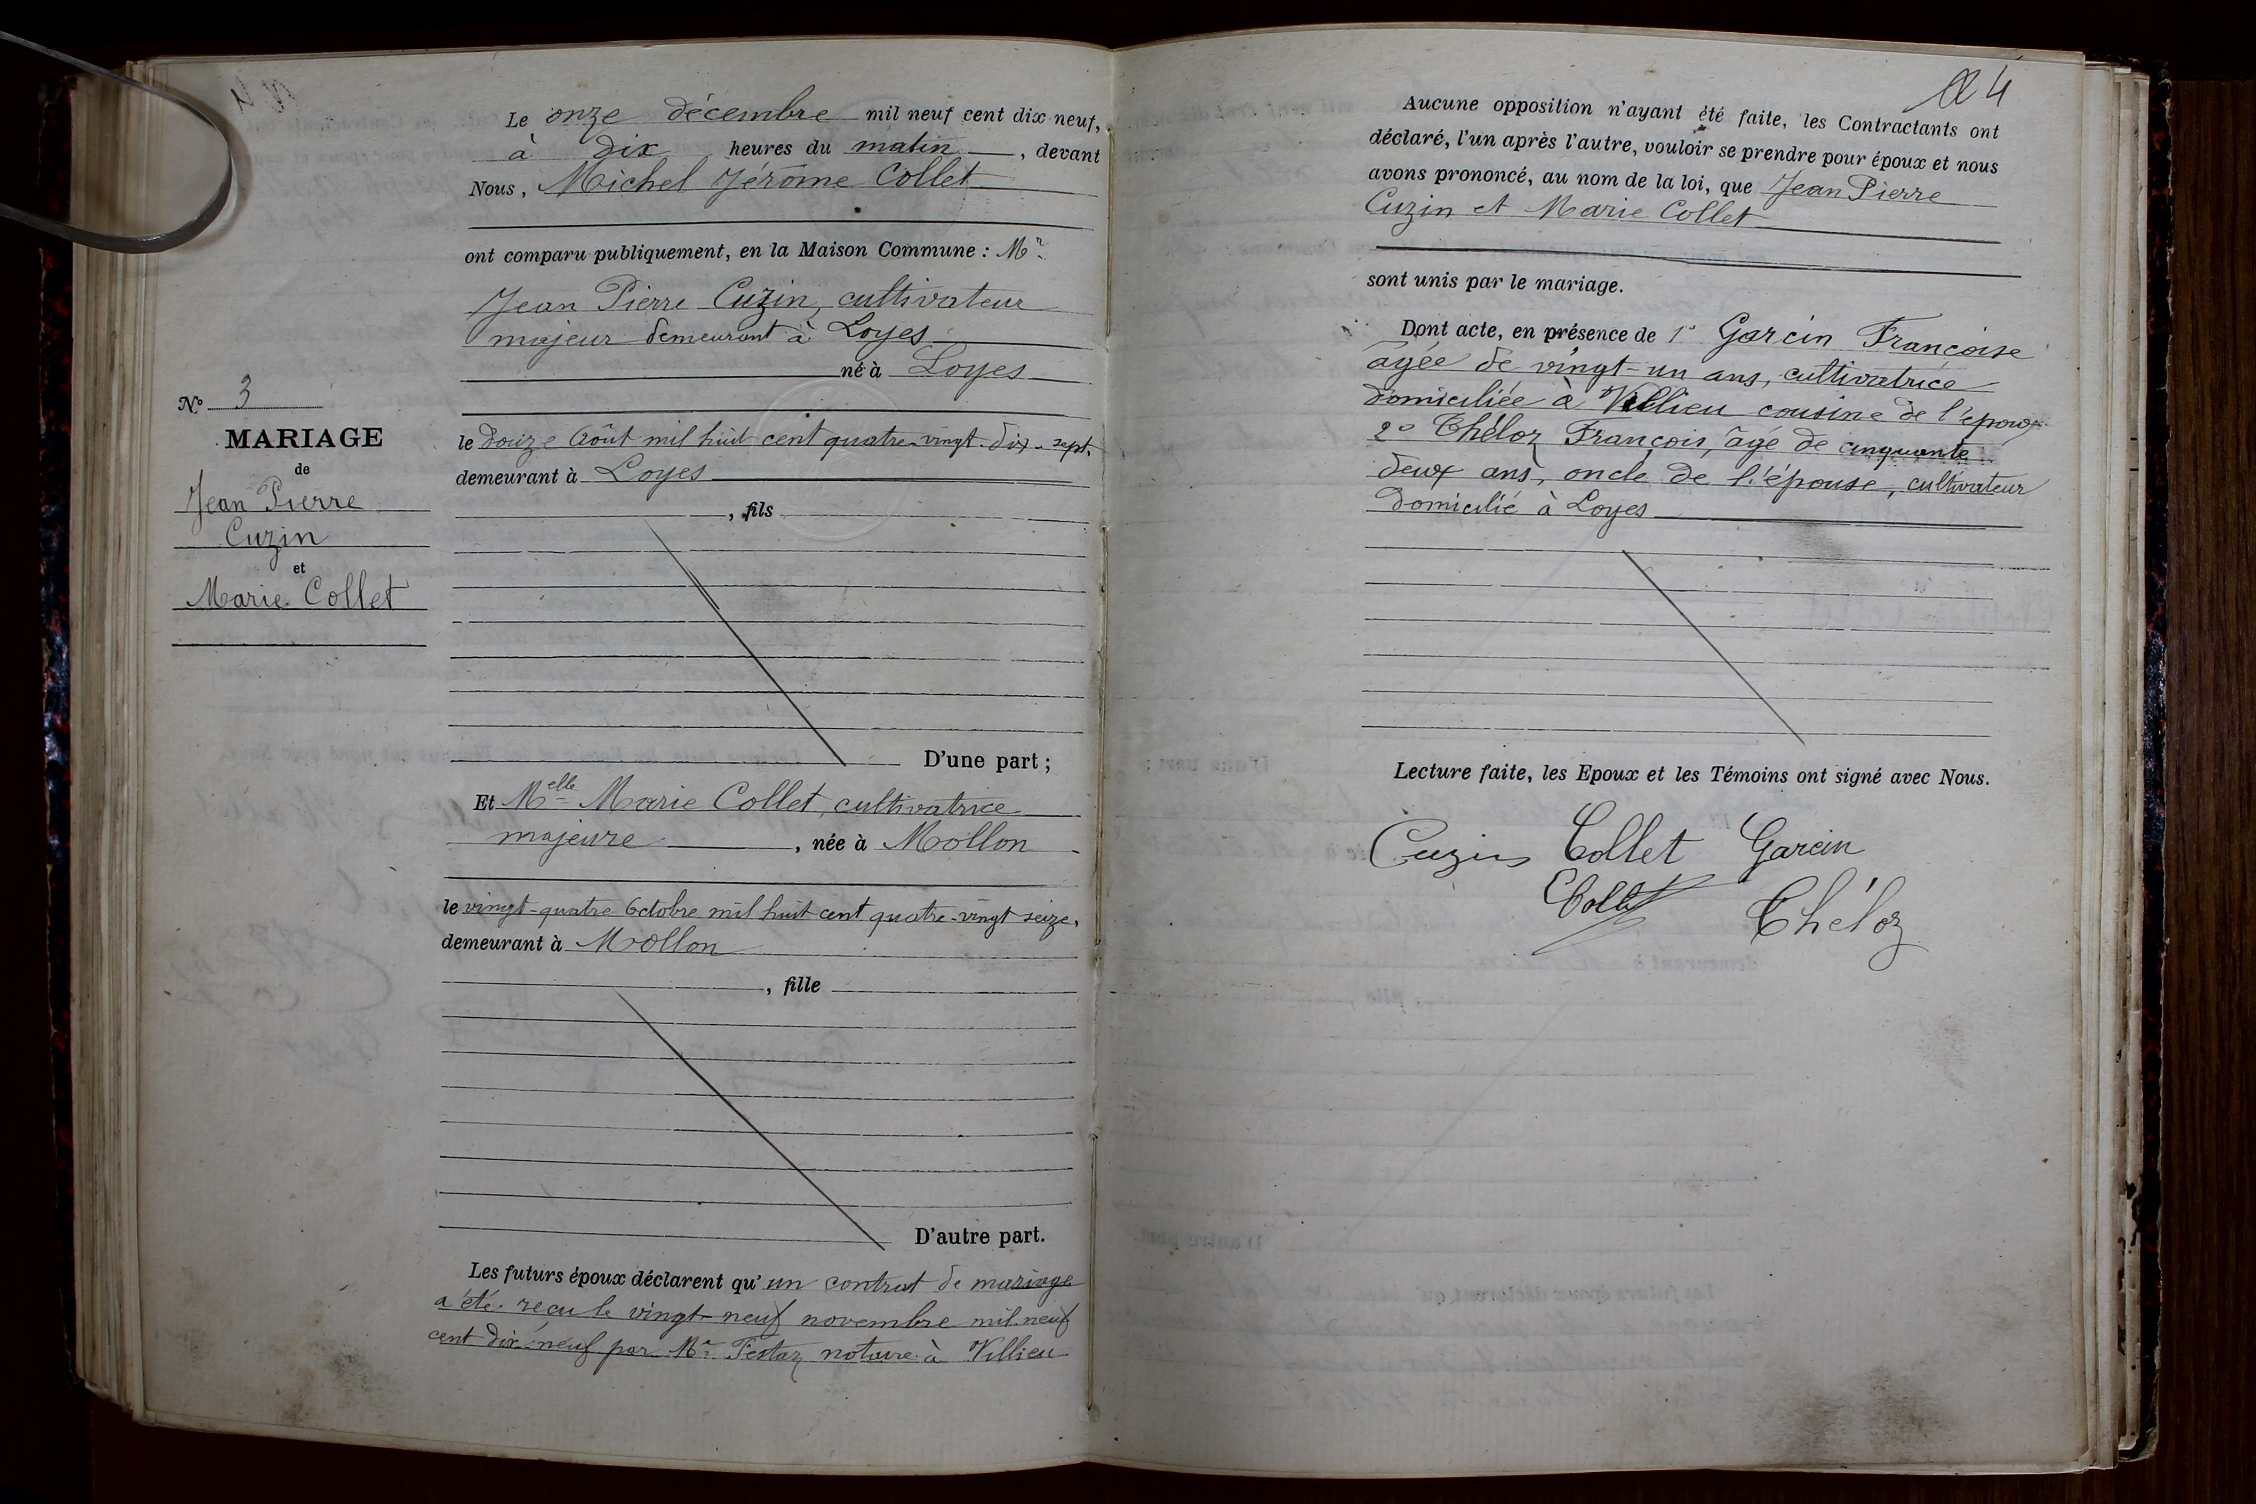 N° 3
MARIAGE
de
Jean Pierre
Cuzin
et
Marie Collet
Le onze décembre mil neuf cent dix neuf,
à dix heures du matin, devant
Nous, Michel Jérôme Collet
ont comparu publiquement, en la Maison Commune : Mr
Jean Pierre Cuzin, cultivateur
majeur demeurant à Loyes
né à Loyes
le douze Août mil huit cent quatre-vingt-dix-sept,
demeurant à Loyes
, fils
D'une part ;
Et Melle Marie Collet, cultivatrice
majeure, née à Mollon
le vingt-quatre Octobre mil huit cent quatre-vingt seize,
demeurant à Mollon
, fille
D'autre part.
Les futurs époux déclarent qu'un contrat de mariage
a été reçu le vingt-neuf novembre mil neuf
cent dix-neuf par Me Festaz notaire à Villieu
4
Aucune opposition n'ayant été faite, les Contractants ont
déclaré, l'un après l'autre, vouloir se prendre pour époux et nous
avons prononcé, au nom de la loi, que Jean Pierre
Cuzin et Marie Collet
sont unis par le mariage.
Dont acte, en présence de 1° Garcin Françoise
âgée de vingt-un ans, cultivatrice
domiciliée à Villieu cousine de l'épouse
2° Théloz François, âgé de cinquante
deux ans, oncle de l'épouse, cultivateur
domicilié à Loyes
Lecture faite, les Epoux et les Témoins ont signé avec Nous.
Cuzin Collet Garcin
Collet Théloz